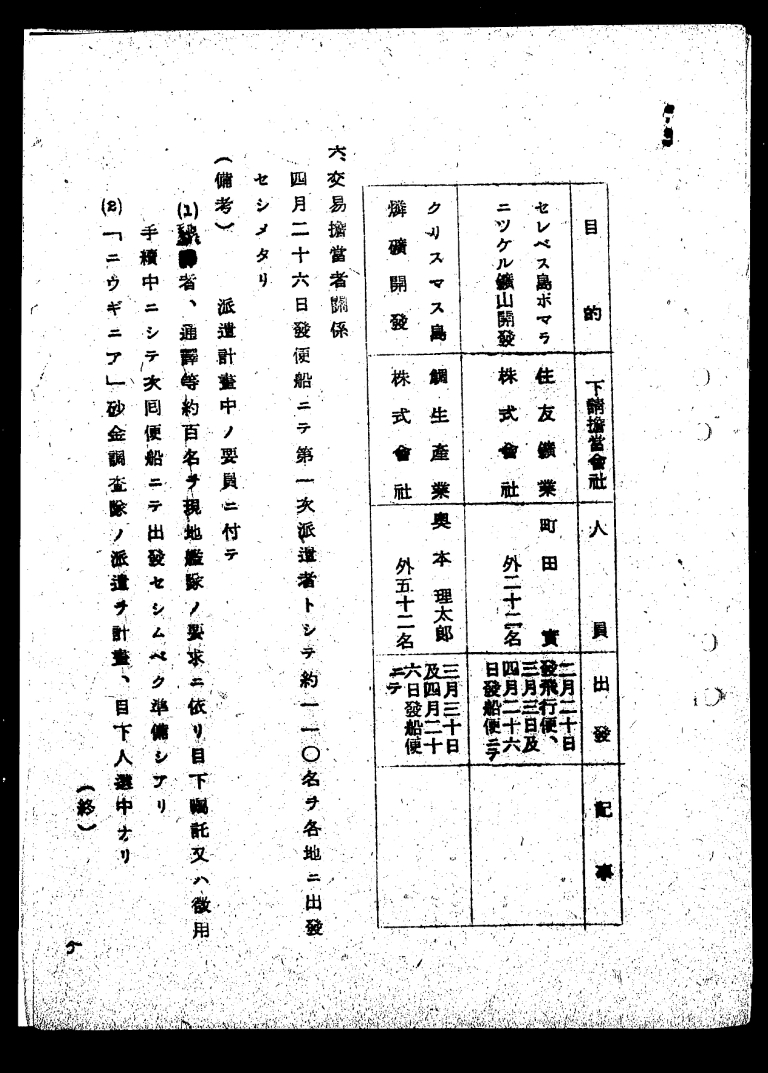 目的
下請擔當會社
人員
出發
記事
セレベス島ポマラ
ニツケル鑛山開發
住友鑛業
株式會社
町田實
外二十二名
二月二十日
發飛行便、
三月三日及
四月二十六
日發船便ニテ
クリスマス島
燐礦開發
鯛生產業
株式會社
奧本理太郎
外五十二名
三月三十日
及四月二十
六日發船便
ニテ
六、交易擔當者關係
四月二十六日發便船ニテ第一次派遣者トシテ約一一〇名ヲ各地ニ出發
セシメタリ
(備考) 派遣計畫中ノ要員ニ付テ
(1) 者、通譯等約百名ヲ現地艦隊ノ要求ニ依リ目下囑託又ハ徵用
手續中ニシテ次回便船ニテ出發セシムベク準備シアリ
(2)「ニウギニア」砂金調査隊ノ派遣ヲ計畫、目下人選中ナリ
(終)